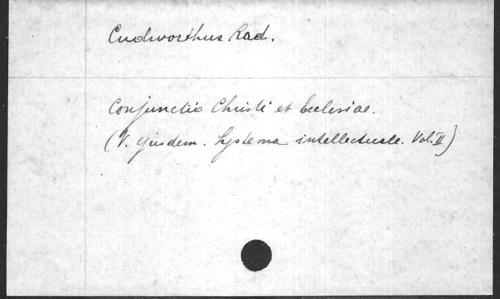 Cudworthus Rad.
Conjunctio Christi et Ecclesiae.
(V. Ejusdem. Systema intellectuale. Vol. II)